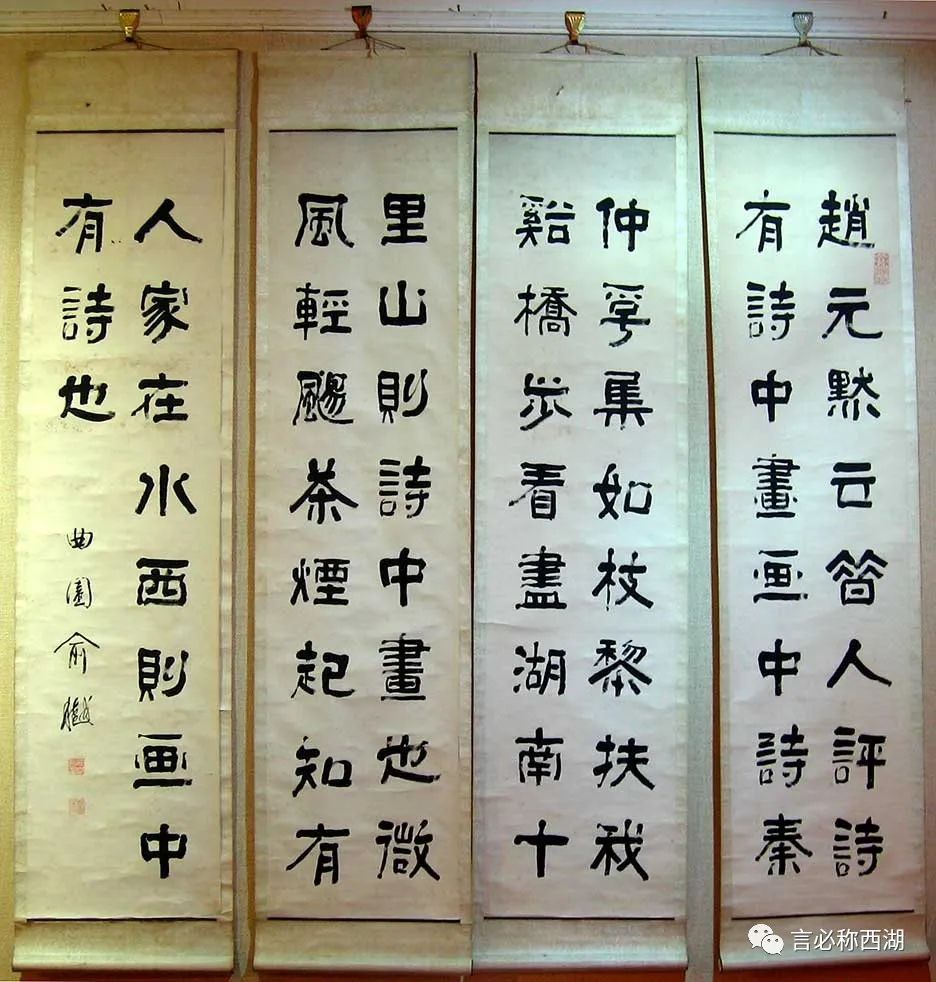 趙元黙云昝人評詩
有詩中畫画中詩秦
仲孚集如杖黎扶我
谿橋步看盡湖南十
里山則詩中畫也微
風輕颺茶煙起知有
人家在水西則画中
有詩也
曲園俞樾
言必称西湖